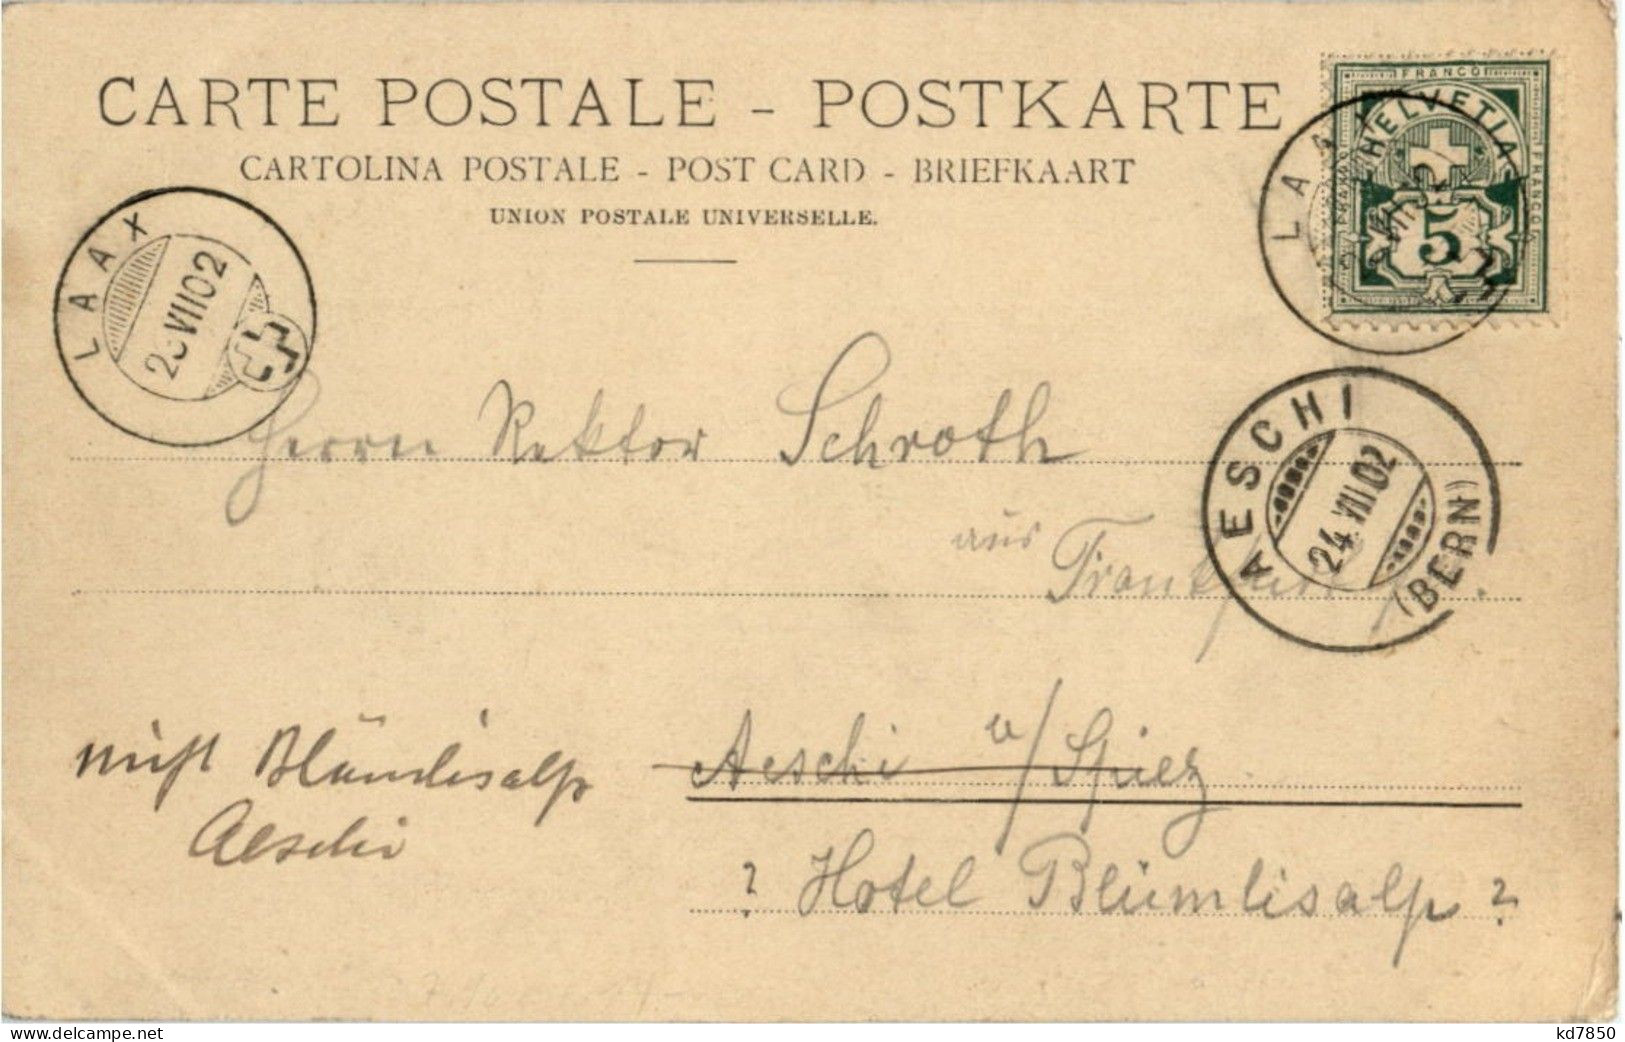 CARTE POSTALE - POSTKARTE
CARTOLINA POSTALE - POST CARD - BRIEFKAART
UNION POSTALE UNIVERSELLE.
FRANCO
HELVETIA
FRANCO
FRANCO
5
LAAX
LAAX
VII 02
23 VII 02
AESCHI
24 VIII 02
(BERN)
Herrn Rektor Schroth
aus
Frankfurt
Aeschi b/Spiez
? Hotel Blümlisalp ?
nicht Blümlisalp
Aeschi
www.delcampe.net
kd7850